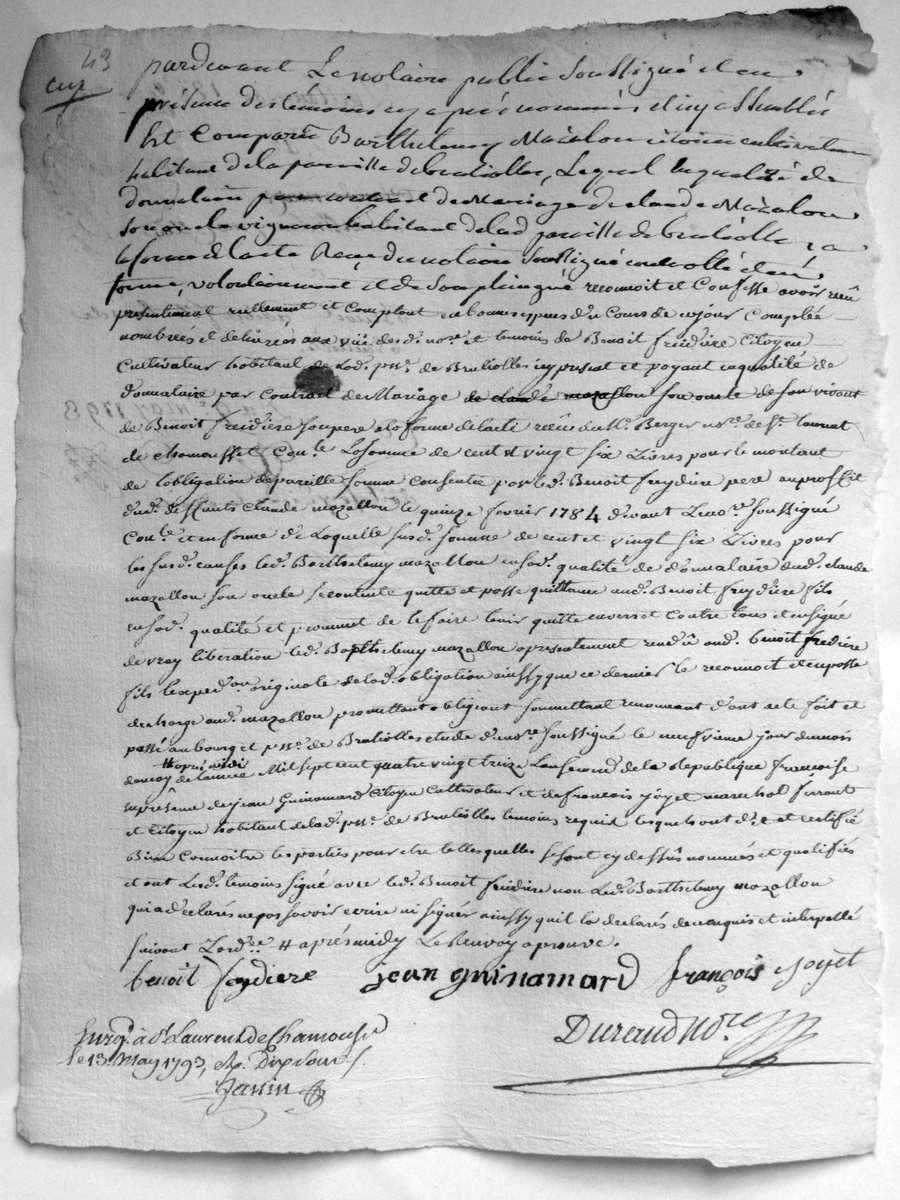 43
cux
pardevant Le notaire public Soussigné et en
présence des témoins cy après nommés
Est Comparu Barthelemy Mazalon citoien cultivateur
habitant de la paroisse de brulliolles, Lequel en qualité de
donnataire par contrat de Mariage de claude Mazalon
son oncle vigneron habitant de lad. paroisse de brulliolles a
la forme de l'acte Reçu du notaire Soussigné controllé et en
forme, volontairement et de son plein gré reconnoit et Confesse avoir reçu
présentement réellement et comptant en bonnes espèces du Cours de ce jour Comptée
nombrées et délivrées aux vüe desd. nore. et temoins de Benoit freidiere Citoyen
Cultivateur habitant de Lad. psse. de Brulliolles icy present et payant en qualité de
donnataire par Contrait de Mariage de claude mazallon son oncle de son vivant
de Benoit freidiere son pere a la forme de l'acte reçu du Me. Berger nore. de St. Laurent
de chamousset Con.le La Somme de cent et vingt six Livres pour le montant
de lobligation de pareille somme Consentie par led. Benoit freydiere pere au proffit
dud. deffunts claude mazallon le quinze fevrier 1784 devant Le nore. Soussigné
Con.le et en forme de Laquelle susd. somme de cent et vingt six Livres pour
les susd. causes led. Barthelemy mazallon en sad. qualité de donnataire dud. claude
mazallon son oncle se contente quitte et passe quittance aud. Benoit freydiere fils
en sad. qualité et promet de le faire tenir quitte envers et contre tous et en signe
de vray liberation led. Barthelemy mazallon a presentement rendû aud. benoit freidiere
fils lexpedon. originale de lad. obligation ainssy que ce dernier le reconnoit et en passe
decharge aud. mazallon promettant obligeant soumettant renonçant dont acte fait et
passé au bourg et psse. de Brulliolles etude du nore. soussigné le neufvieme jour du mois
# apres midi
de may de lannée Mil sept cent quatre vingt treize Lan second de la Republique françoise
en présence de jean Guinamard Citoyen Cultivateur et de françois joyet marechal ferrant
et Citoyen habitant de lad. psse. de Brulliolles temoins requis lesquels ont dit et certifié
Bien Connoitre les parties pour etre telles quelles se sont cy dessûs nommés et qualifiés
et ont Lesd. temoins signé avec led. Benoit freidiere non Led. Barthelemy mazallon
qui a declarés ne pas savoir ecrire ni signér ainssy quil la declarés de ce enquis et interpellé
suivant Lordce. # aprés midy Le Renvoy aprouvé.
benoit freydiere jean guinamard françois Joyet
Durand Nore
Enreg. à St Laurent de Chamousset
le 13. May 1793, Rç. Dix sous
Janin